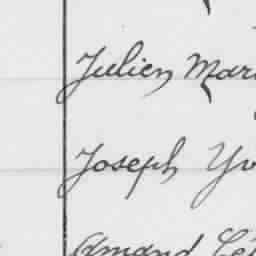 Julien Mar
Joseph Yv
Armand Cé